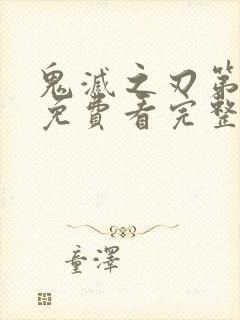 鬼滅之刃第
免費看完整
童澤